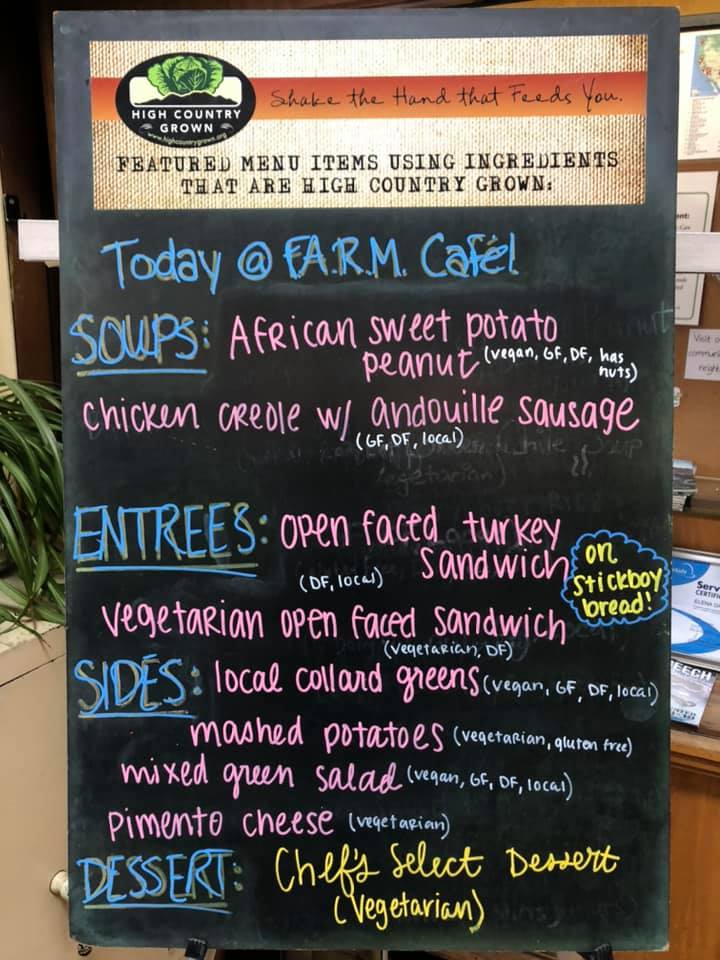 HIGH COUNTRY
GROWN
www.highcountrygrown.org
Shake the Hand that Feeds You.
FEATURED MENU ITEMS USING INGREDIENTS
THAT ARE HIGH COUNTRY GROWN:
Today @ F.A.R.M. Café!
SOUPS: African sweet potato
peanut (vegan, GF, DF, has
nuts)
chicken creole w/ andouille sausage
(GF, DF, local)
ENTREES: open faced turkey
sandwich
(DF, local)
on
stickboy
bread!
vegetarian open faced sandwich
(vegetarian, DF)
SIDES: local collard greens (vegan, GF, DF, local)
mashed potatoes (vegetarian, gluten free)
mixed green salad (vegan, GF, DF, local)
pimento cheese (vegetarian)
DESSERT: Chef's Select Dessert
(Vegetarian)